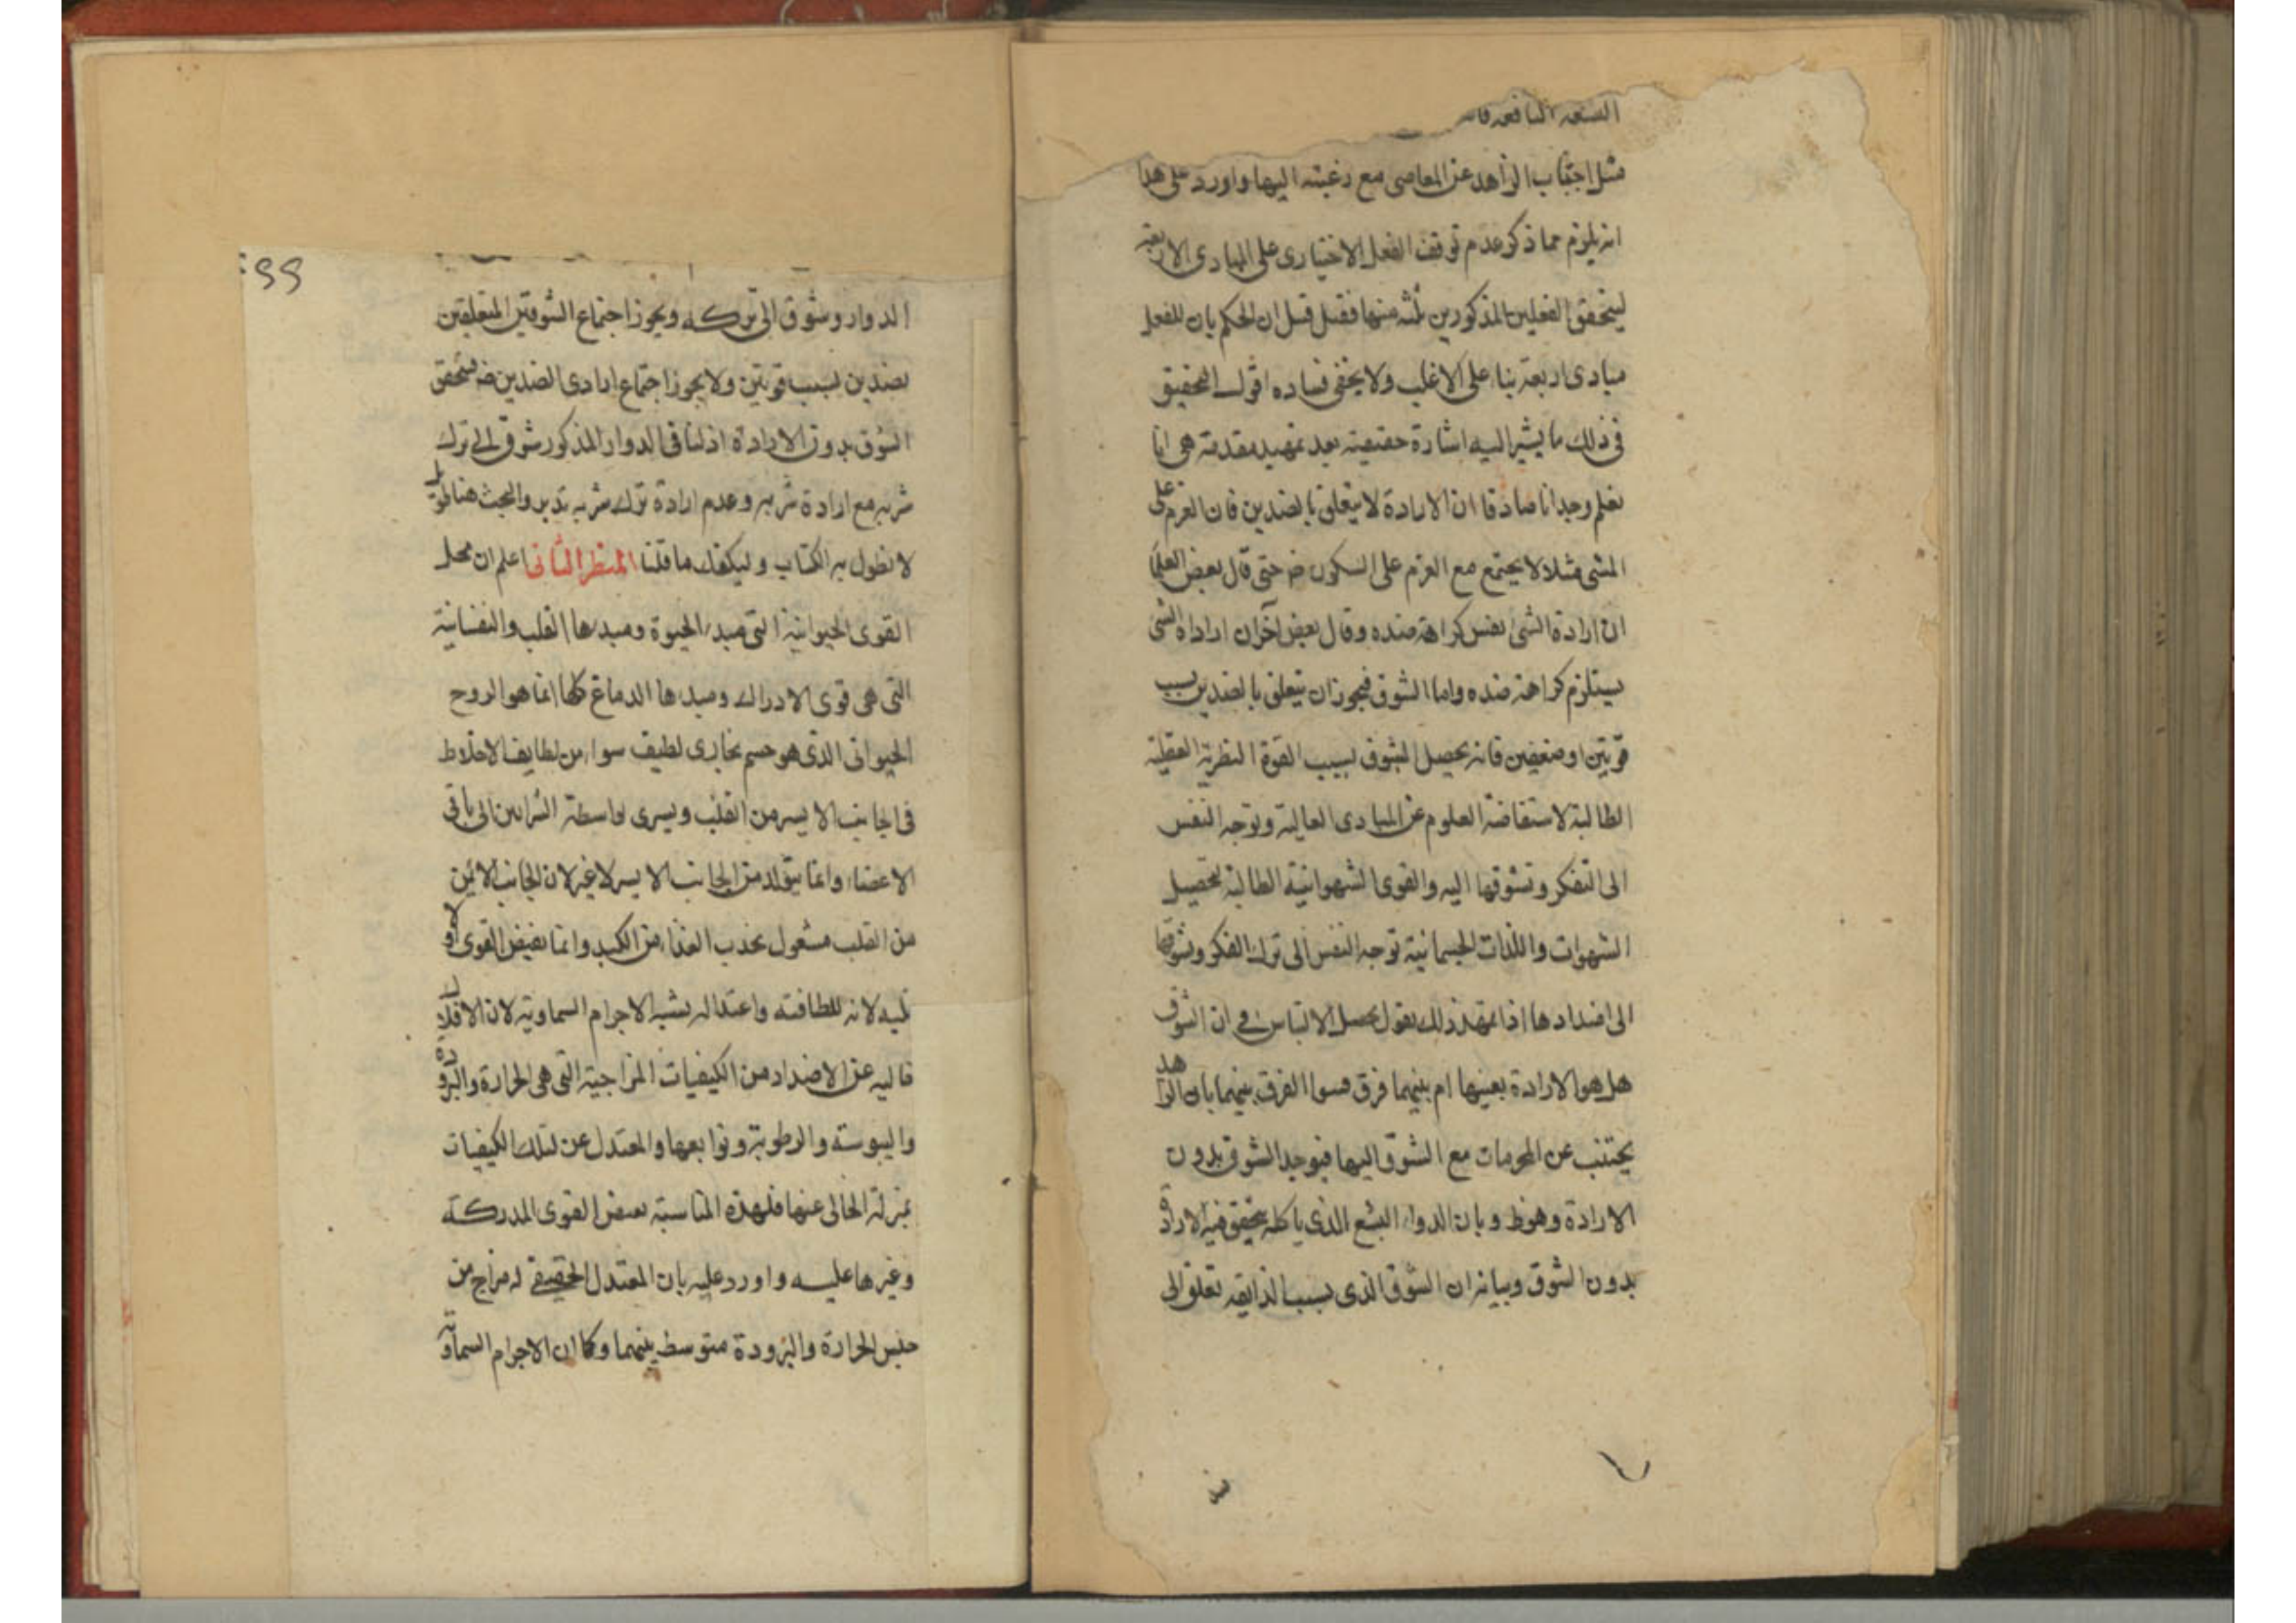 البشعة النافعة
مثل اجتناب الزاهد عن المعاصى مع رغبته اليها واورد على هذا
انه يلزم مما ذكر عدم توقف الفعل الاختيارى على المبادى الاربعة
ليتحقق الفعلين المذكورين بثلثة منها فقيل قيل ان الحكم بان للفعل
مبادى اربعة بناء على الاغلب ولا يخفى فساده اقول التحقيق
فى ذلك ما يشير اليه اشارة حقيقية بعد تمهيد مقدمة هى انا
نعلم وجدانا صادقا ان الارادة لا يتعلق بالضدين فان العزم على
المشى مثلا لا يجتمع مع العزم على السكون ضه حتى قال بعض العلما
ان ارادة الشى نفس كراهة ضده وقال بعض آخران ارادة الشى
يستلزم كراهة ضده واما الشوق فيجوز ان يتعلق بالضدين بسبب
قوتين او ضعفين فانه يحصل الشوق بسبب القوة النظرية العقلية
الطالبة لاستفاضة العلوم عن المبادى العالية وتوجه النفس
الى التفكر وتشوقها اليه والقوى الشهوانية الطالبة لتحصيل
الشهوات واللذات الجسمانية توجه النفس الى ترك الفكر وتشوقها
الى اضدادها اذا تمهد ذلك نقول يحصل الالتباس فى ان الشوق
هل هو الارادة بعينها ام بينهما فرق فسوا الفرق بينهما بان الزاهد
يجتنب عن المحرمات مع الشوق اليها فيوجد الشوق بدون
الارادة وهوظ وبان الدواء البشع الذى ياكله يتحقق فيه الارادة
بدون الشوق وبيانه ان الشوق الذى بسبب الذايقة تعلق الى
ل
99
الدواء وشوق الى تركه ويجوز اجتماع الشوقين المتعلقين
بضدين بسبب قوتين ولا يجوز اجتماع ارادى الضدين ضه فيتحقق
الشوق بدون الارادة اذ لنا فى الدواء المذكور شوق الى ترك
شربه مع ارادة شربه وعدم ارادة ترك شربه تدبر والبحث هنا طويل
لا نطول به الكتاب وليكفك ما قلنا المنظر الثانى اعلم ان محل
القوى الحيوانية التى مبدء الحيوة ومبدءها القلب والنفسانية
التى هى قوى الادراك ومبدءها الدماغ كلها انما هو الروح
الحيوانى الذى هو جسم بخارى لطيف سواء من لطايف الاخلاط
فى الجانب الايسر من القلب ويسرى بواسطة الشرايين الى باقى
الاعضاء وانما يتولد من الجانب الايسر لا غير لان الجانب الايمن
من القلب مشغول بجذب الغذاء من الكبد وانما تفيض القوى اولا
عليه لانه للطافته واعتداله يشبه الاجرام السماوية لان الافلاك
خاليه عن الاضداد من الكيفيات المزاجية التى هى الحرارة والبرودة
واليبوسته والرطوبة وتوابعها والمعتدل عن تلك الكيفيات
بمنزلة الخالى عنها فلهذه المناسبة يفيض القوى المدركة
وغيرها عليه واورد عليه بان المعتدل الحقيقى له مزاج من
جنس الحرارة والبرودة متوسط بينهما وكما ان الاجرام السماوية